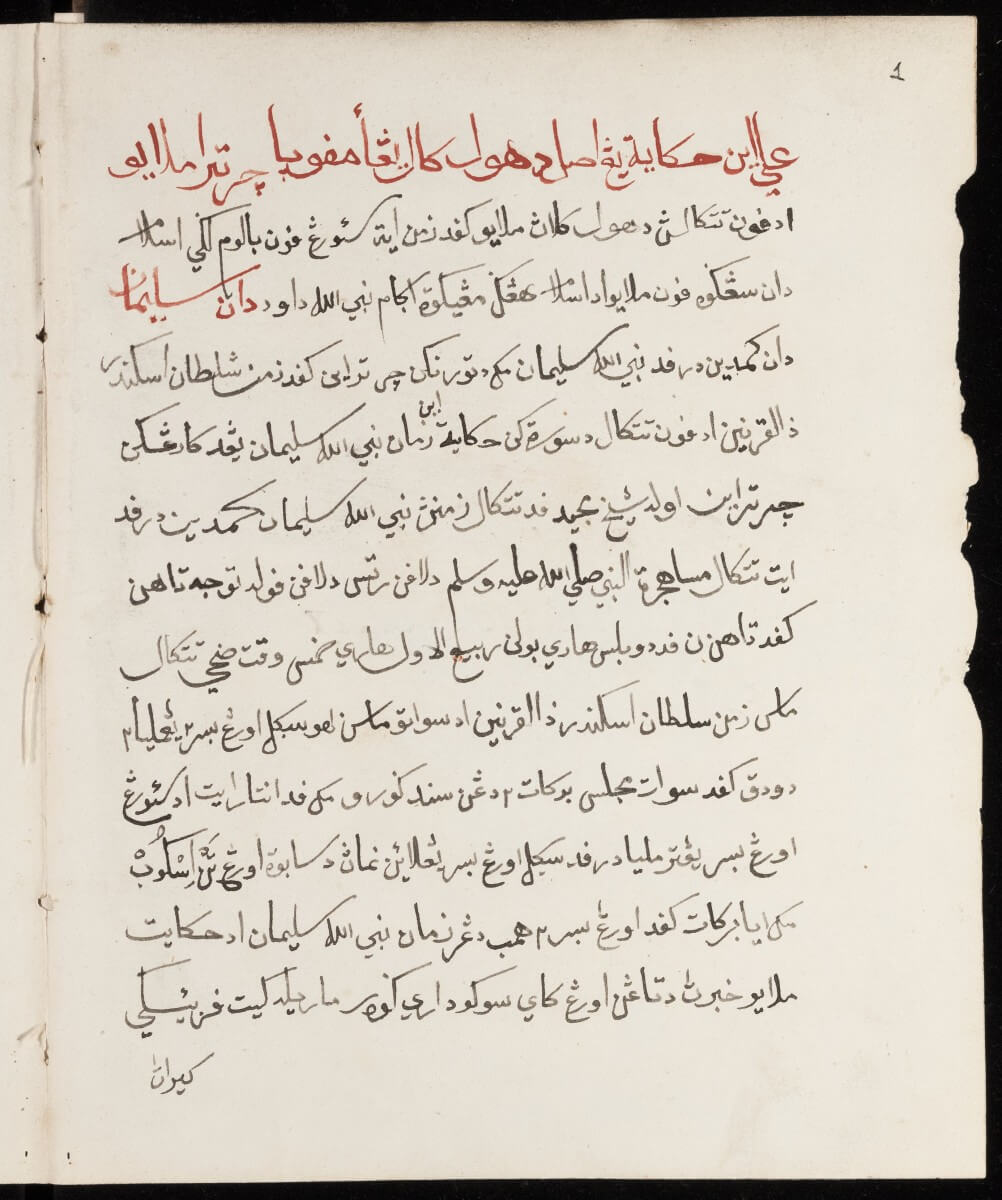 1
علي اين حكاية يڠ اصل دهول كال يڠ أمفوڽا چرترا ملايو
ادفون تتكالڽ دهول كلان ملايو كفد زمن ايت سئورڠ فون بلوم لاڬي اسلام
دان سڠكوه فون ملايو اد اسلام هڠڬ مڠيكوة اڬام نبي الله داود دان سليمان
دان كمدين درفد نبي الله سليمان مك دتورنكن چرترا اين كفد زمن سلطان اسكندر
ذالقرنين ادفون تتكال دسورة كن حكاية اين زمان نبي الله سليمان يڠد كارڠكن
چرترا اين اوله شيخ بجيد فد تتكال زمنڽ نبي الله سليمان كمدين درفد
ايت تتكال مساهجرة النبي صلي الله عليه وسلم دلافن رتس دلافن فوله توجه تاهن
كفد تاهن ن فد دوبلس هاري بولن ربيع الاول هاري خمس وقت ضحي تتكال
ماس زمن سلطان اسكندر ذالقرنين اد سواتو ماس سكل اورڠ بسر٢ يڠمليا٢
دودق كفد سوات مجلس بركات٢ دڠن سند كورو مك فد انتارا ايت اد سئورڠ
اورڠ بسر يڠتر مليا درفد سكل اورڠ بسر يڠلائن نمان دسابوة اورڠ
مك ايا بركات كفد اورڠ بسر٢ همب دڠر زمان نبي الله سليمان اد حكايت
ملايو خبرڽ دتاڠن اورڠ كاي سوكودا راي ماريله كيت فريئسكي
كيران